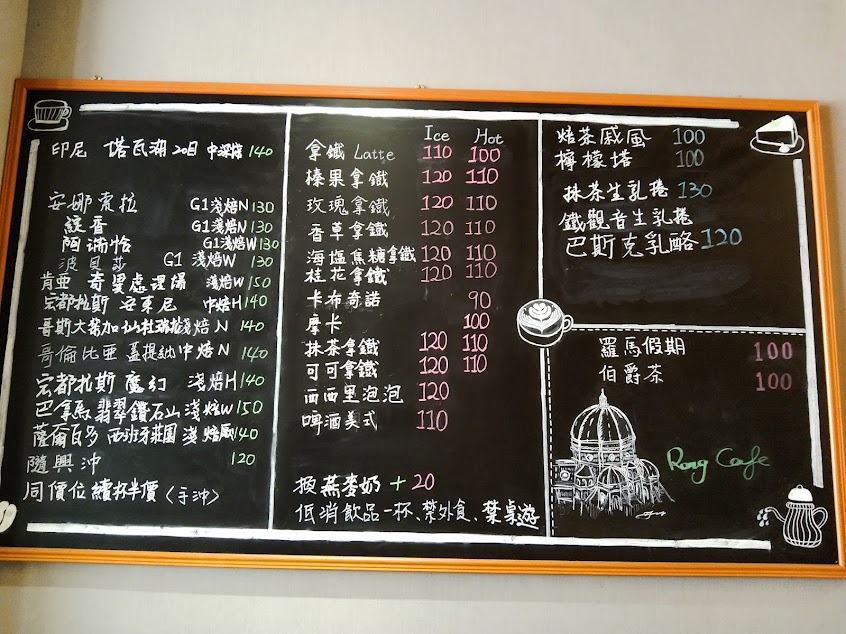 印尼 塔瓦湖 20目 中深焙 140
安娜索拉 G1淺焙N 130
綻香 G1淺焙N 130
阿瑞恰 G1淺焙W 130
波貝莎 G1 淺焙W 130
肯亞 奇里處理場 淺焙W 150
宏都拉斯 安東尼 中焙H 140
哥斯大黎加 淺焙N 140
哥倫比亞 蓋提納 中焙N 140
宏都拉斯 魔幻 淺焙H 140
巴拿馬 翡翠鑽石山 淺焙W 150
薩爾瓦多 西班牙莊園 淺焙 140
隨興沖 120
同價位續杯半價〈手沖〉
Ice Hot
拿鐵 Latte 110 100
榛果拿鐵 120 110
玫瑰拿鐵 120 110
香草拿鐵 120 110
海塩焦糖拿鐵 120 110
桂花拿鐵 120 110
卡布奇諾 90
摩卡 100
抹茶拿鐵 120 110
可可拿鐵 120 110
西西里泡泡 120
啤酒美式 110
換燕麥奶 + 20
低消飲品一杯、禁外食、禁桌遊
焙茶戚風 100
檸檬塔 100
抹茶生乳捲 130
鐵觀音生乳捲
巴斯克乳酪 120
羅馬假期 100
伯爵茶 100
Rong Cafe